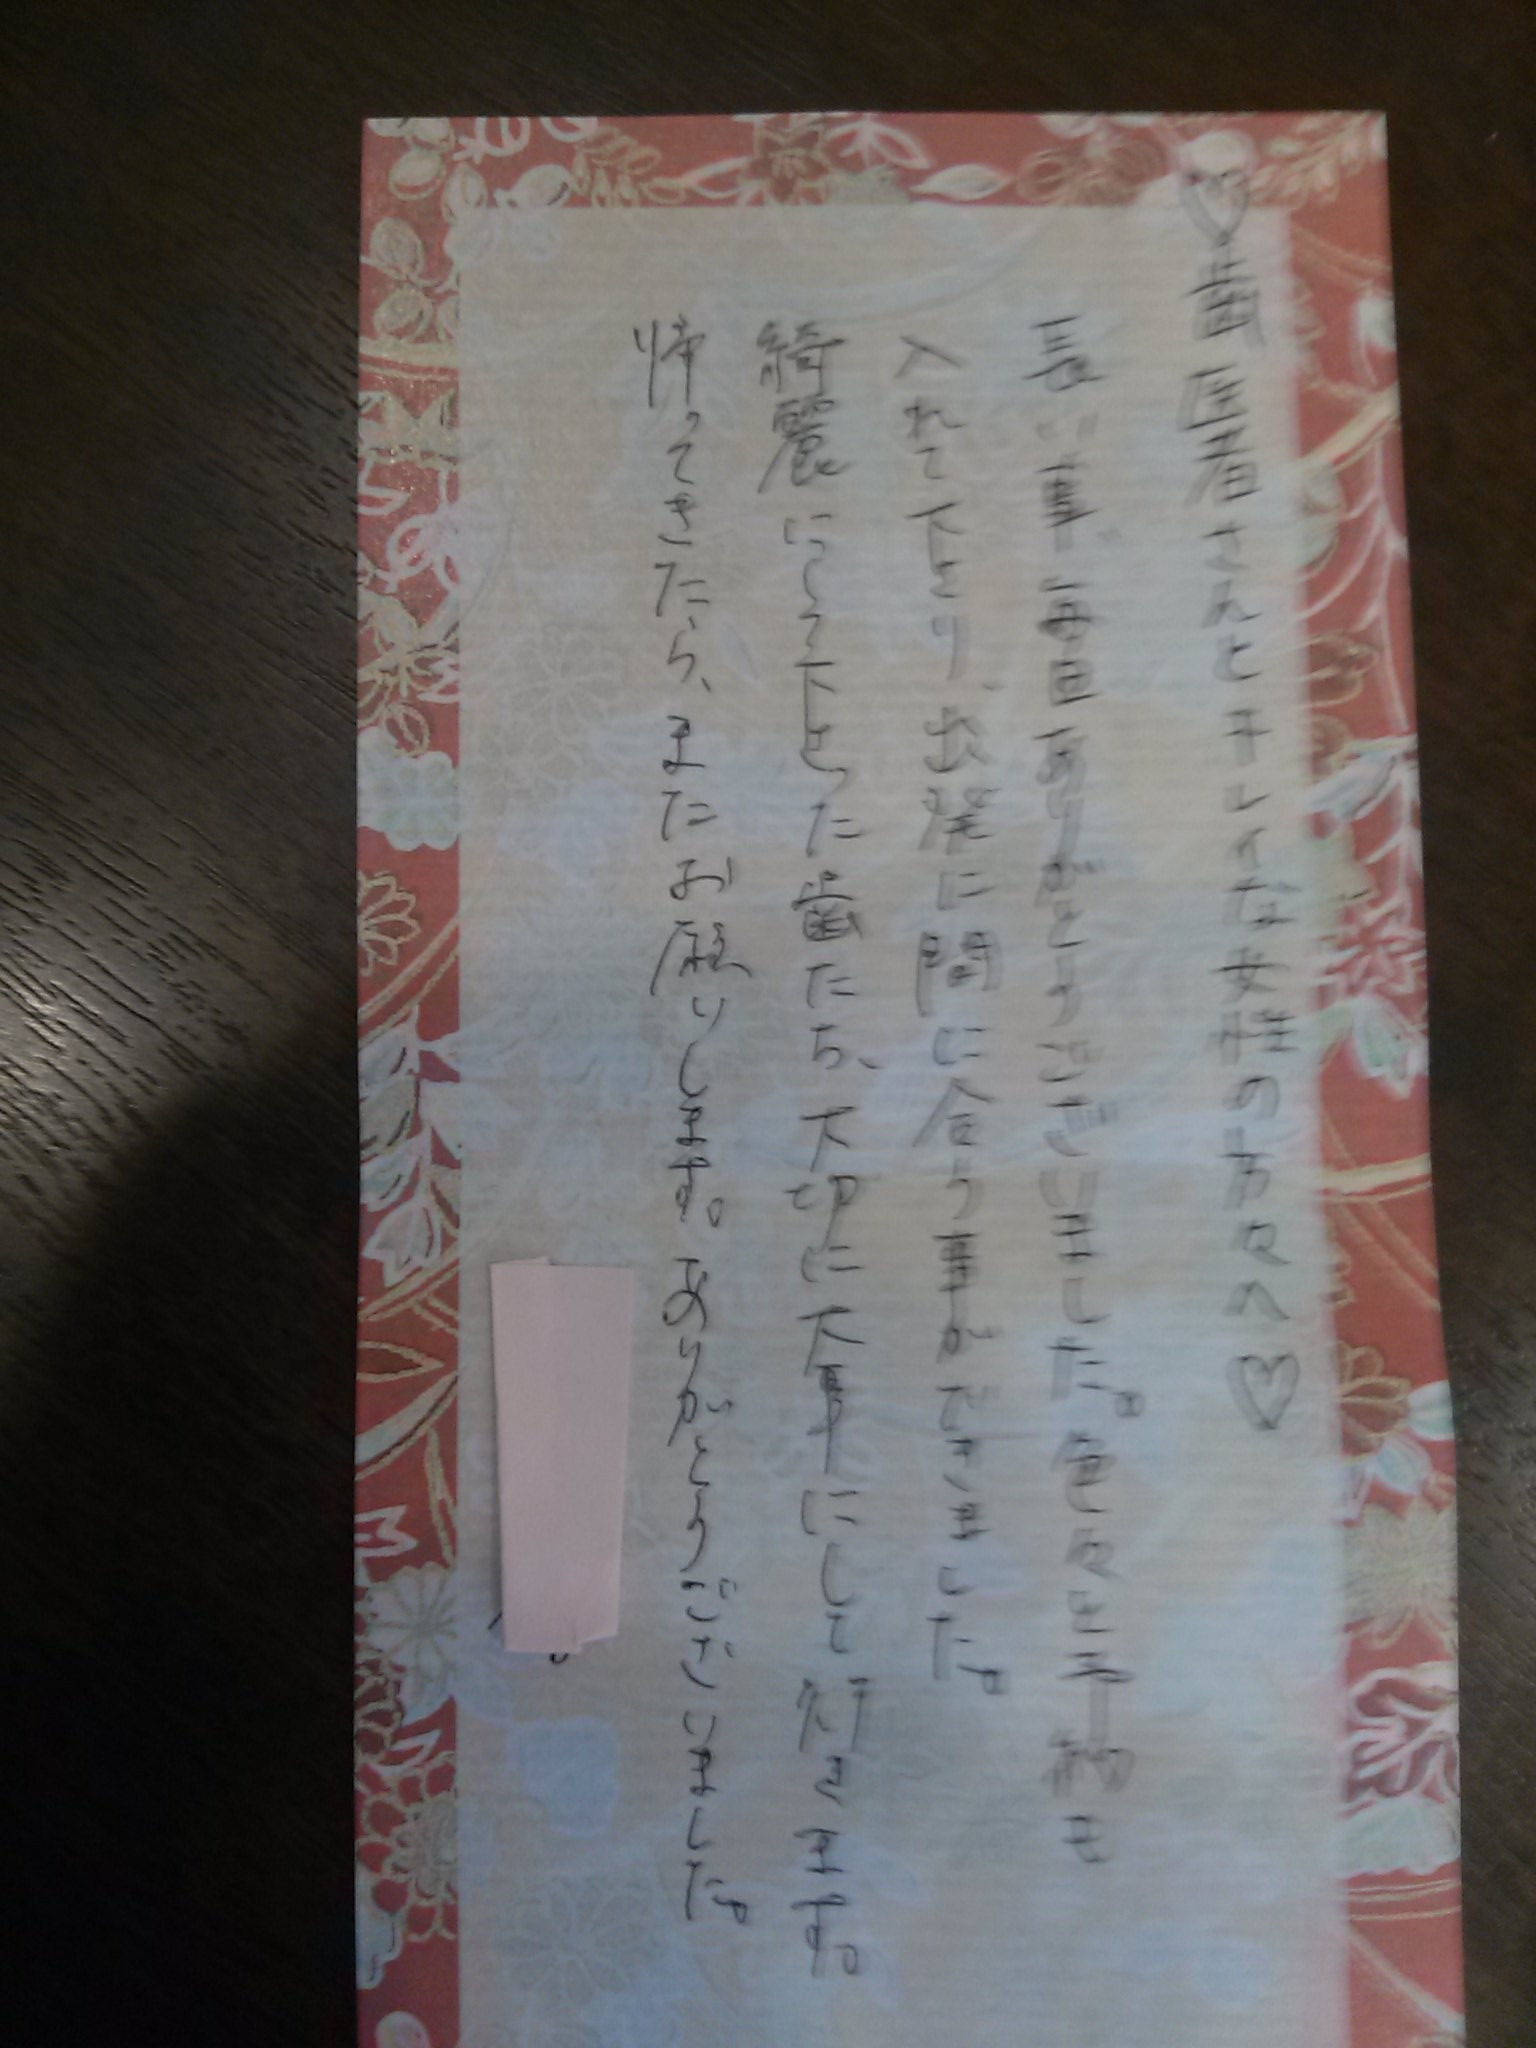 ♡歯医者さんとキレイな女性の方々へ♡
長い事毎回ありがとうございました。色々と予約も
入れて下さり、出発に間に合う事ができました。
綺麗にして下さった歯たち、大切に大事にして行きます。
帰ってきたら、またお願いします。ありがとうございました。